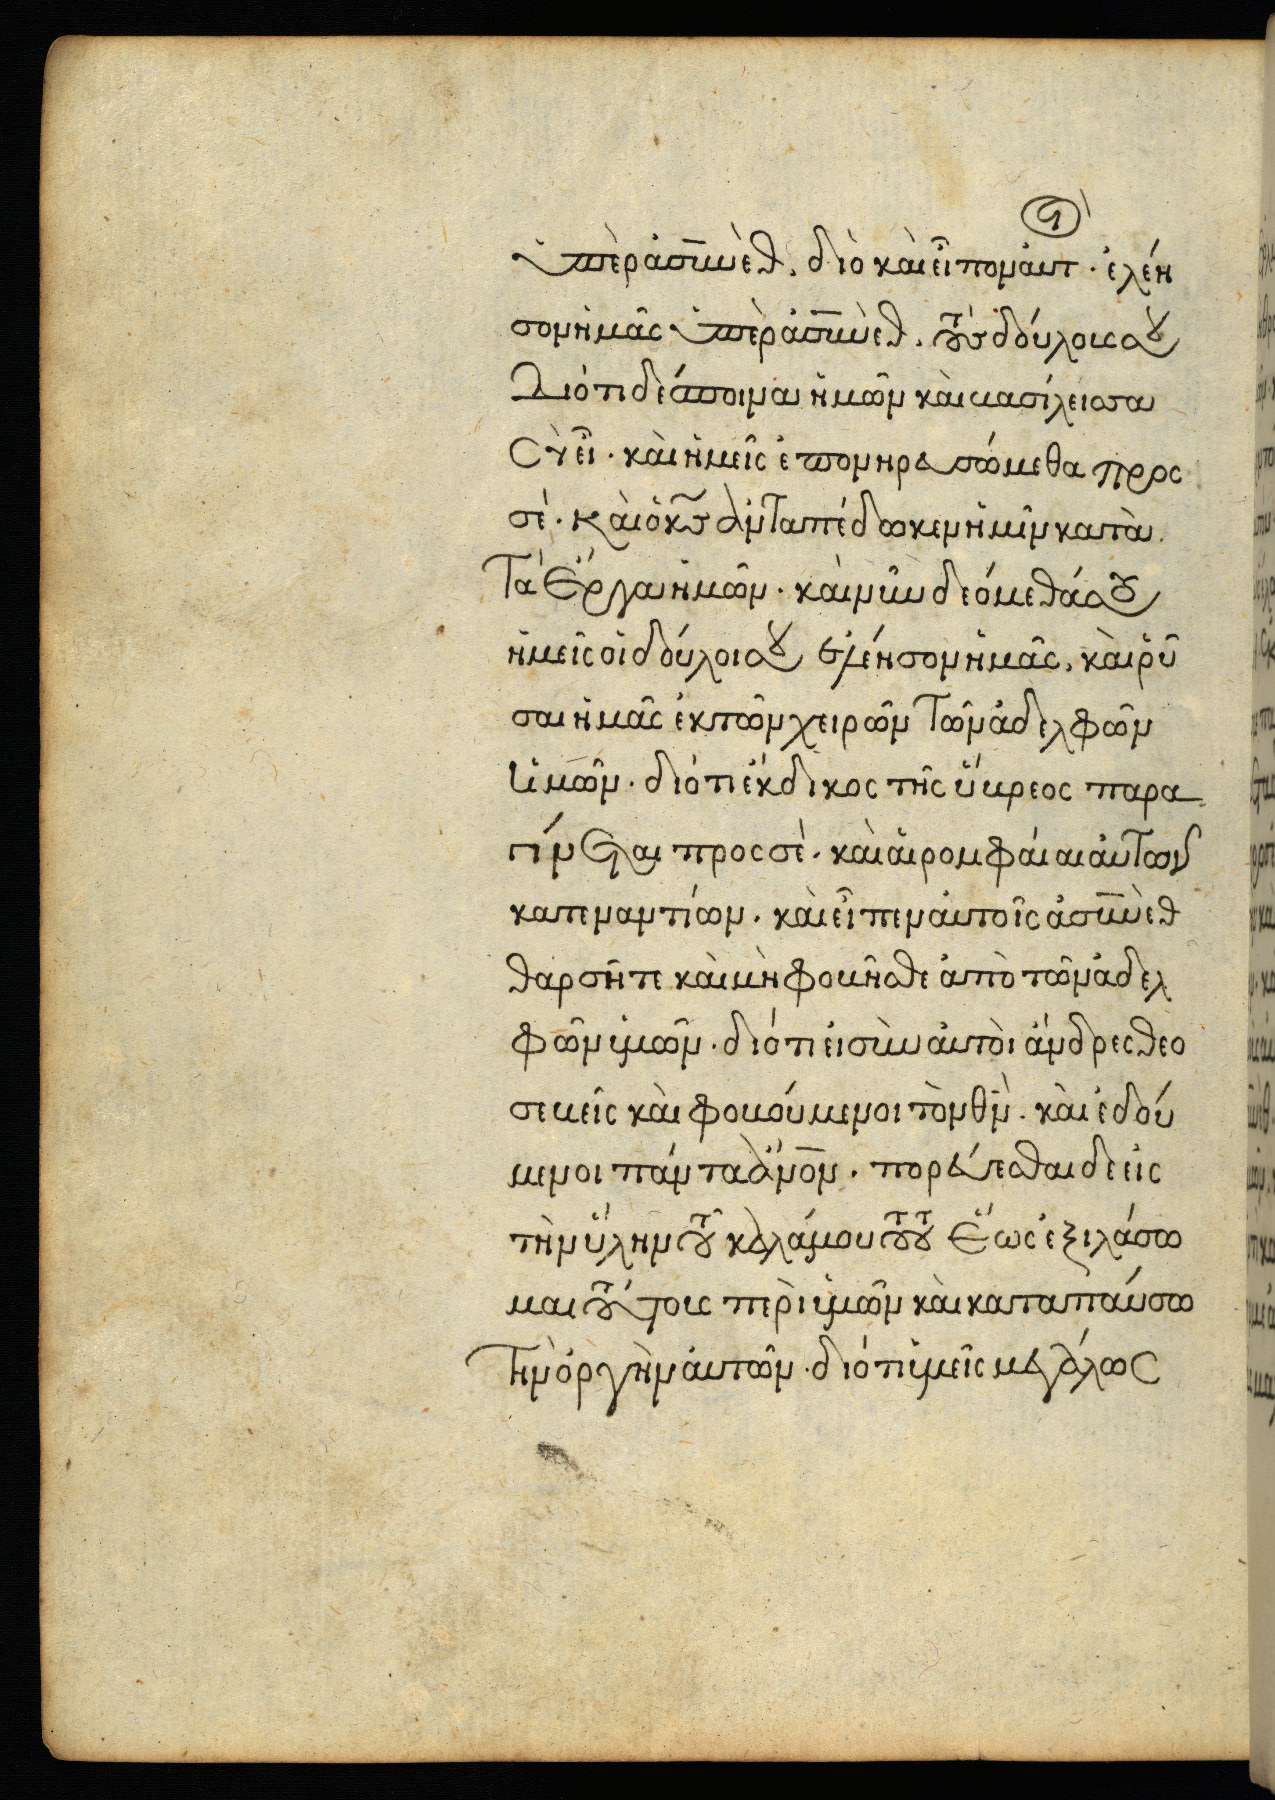 ὑπὲρ ἀσυνὲθ. διὸ καὶ εἶπον ἀυτ · ἐλέη
σον ἡμᾶς ὑπὲρ ἀσυνὲθ. τοὺς δούλους σου
Διότι δέσποινα ἡμῶν καὶ βασίλεισσα
σὺ εἶ · καὶ ἡμεῖς ἐπονηρευσώμεθα προς
σέ · καὶ ὁ κς ἀνταπέδωκεν ἡμῖν κατὰ
τὰ ἔργα ἡμῶν · καὶ νῦν δεόμεθά σου
ἡμεῖς οἱ δούλοι σου ἐλέησον ἡμᾶς, καὶ ῥῦ
σαι ἡμᾶς ἐκ τῶν χειρῶν τῶν ἀδελφῶν
ἱμῶν · διότι ἔκδικος τῆς ὕβρεος παρα
γίνεται προς σέ · καὶ ἁι ρομφάιαι ἀυτων
κατεναντίων · καὶ εἶπεν ἀυτοῖς ἀσυνὲθ
θαρσῆτε καὶ μὴ φοβῆσθε ἀπὸ τῶν ἀδελ
φῶν ὑμῶν · διότι εἰσὶν ἀυτὸι ἄνδρες θεο
σεβεῖς καὶ φοβούμενοι τὸν θν · καὶ ἐδού
μενοι πάντα ἄνον · πορεύεσθαι δὲ εἰς
τὴν ὕλην τοῦ καλάμου τούτου ἕως ἐξιλάσω
μαι τούτοις περὶ ὑμῶν καὶ καταπαύσω
τὴν ὀργὴν ἀυτῶν · διότι ὑμεῖς μεγάλως